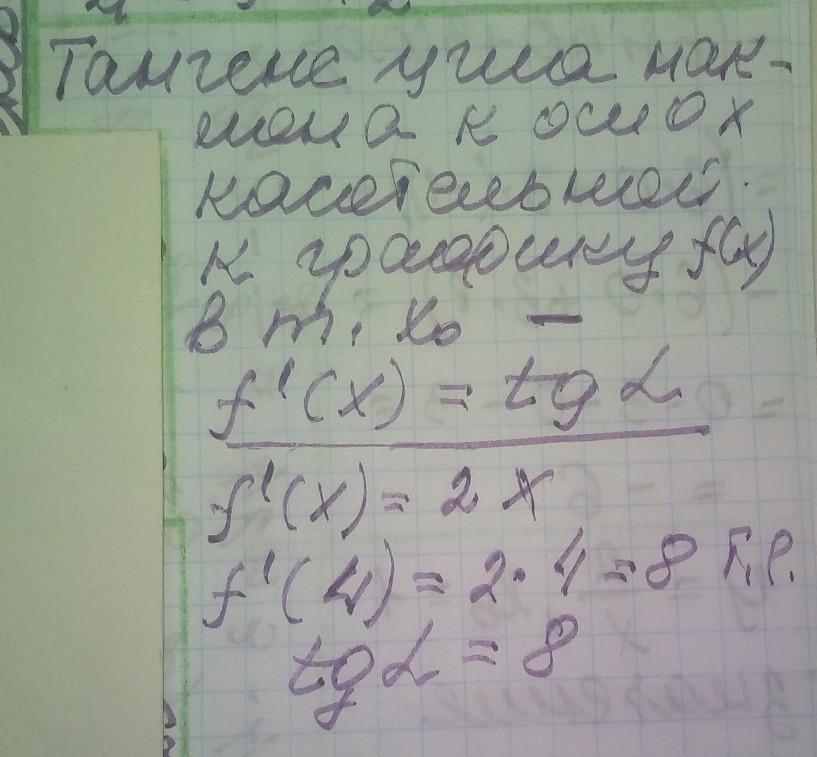 Тангенс угла нак-
лона к оси Ох
касательной
к графику f(x)
в т. х₀ —
f'(x) = tg α
f'(x) = 2x
f'(4) = 2·4 = 8 т.е.
tg α = 8